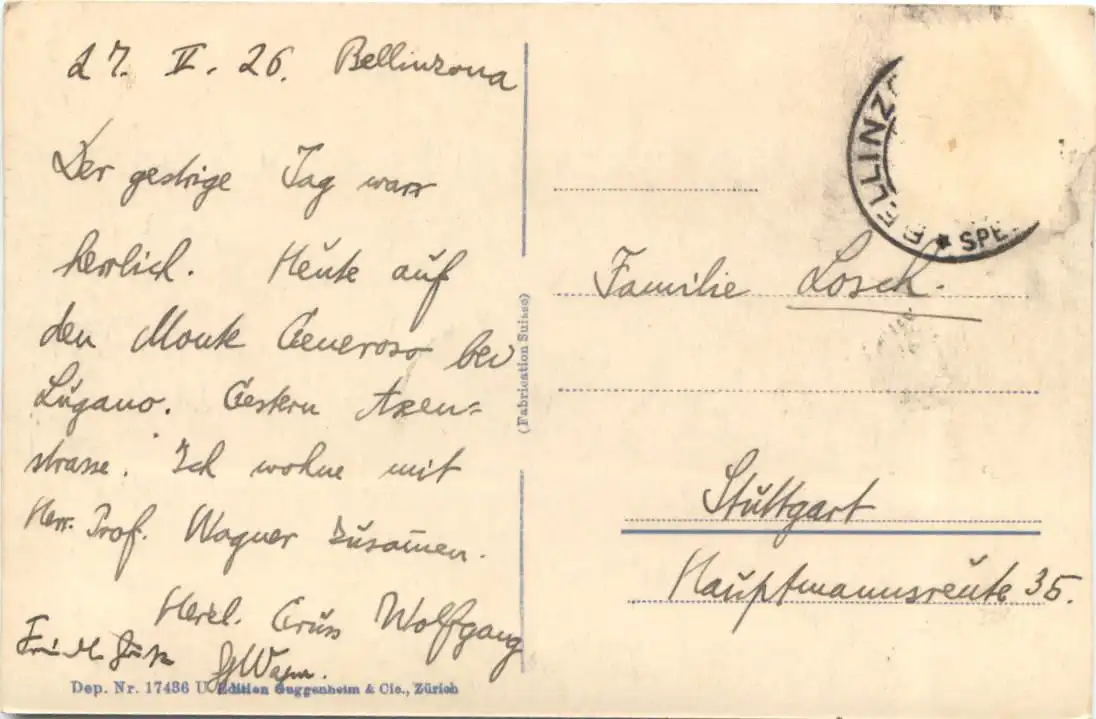 27. V. 26. Bellinzona
Der gestrige Tag war
herrlich. Heute auf
den Monte Generoso bei
Lugano. Gestern Axen=
strasse. Ich wohne mit
Herr. Prof. Wagner zusam̄en.
Herzl. Gruss Wolfgang
Wagner.
Dep. Nr. 17436 U Edition Guggenheim & Cie., Zürich
(Fabrication Suisse)
BELLINZ
* SPE
Familie Losch.
Stuttgart
Hauptmannsreute 35.